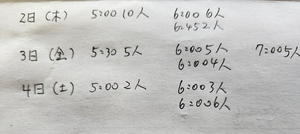 2日(木) 5:00 10人 6:00 6人
6:45 2人
3日(金) 5:30 5人 6:00 5人 7:00 5人
6:00 4人
4日(土) 5:00 2人 6:00 3人
6:00 6人